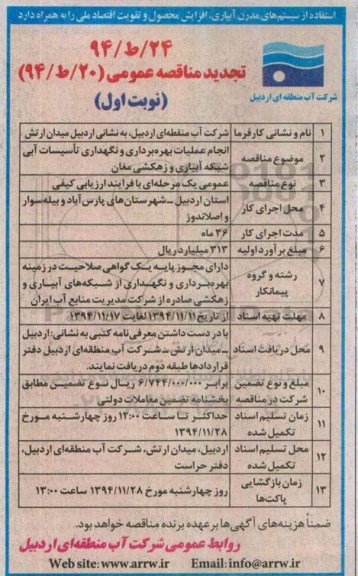 استفاده از سیستم‌های مدرن آبیاری، افزایش محصول و تقویت اقتصاد ملی را به همراه دارد
۹۴/ط/۲۴
تجدید مناقصه عمومی (۹۴/ط/۲۰)
(نوبت اول)
شرکت آب منطقه‌ای اردبیل
۱ نام و نشانی کارفرما شرکت آب منطقه‌ای اردبیل، به نشانی اردبیل میدان ارتش
۲ موضوع مناقصه انجام عملیات بهره‌برداری و نگهداری تأسیسات آبی
شبکه آبیاری و زهکشی مغان
۳ نوع مناقصه عمومی یک مرحله‌ای با فرایند ارزیابی کیفی
۴ محل اجرای کار استان اردبیل ـ شهرستان‌های پارس‌آباد و بیله‌سوار
و اصلاندوز
۵ مدت اجرای کار ۳۶ ماه
۶ مبلغ برآورد اولیه ۳۱۳ میلیارد ریال
۷ رشته و گروه پیمانکار دارای مجوز پایه یک گواهی صلاحیت در زمینه
بهره‌برداری و نگهداری از شبکه‌های آبیاری و
زهکشی صادره از شرکت مدیریت منابع آب ایران
۸ مهلت تهیه اسناد از تاریخ ۱۳۹۴/۱۱/۱۱ لغایت ۱۳۹۴/۱۱/۱۷
۹ محل دریافت اسناد با در دست داشتن معرفی‌نامه کتبی به نشانی: اردبیل
ـ میدان ارتش ـ شرکت آب منطقه‌ای اردبیل دفتر
قراردادها طبقه دوم دریافت نمایند.
۱۰ مبلغ و نوع تضمین شرکت در مناقصه برابر ۶/۷۴۴/۰۰۰/۰۰۰ ریال نوع تضمین مطابق
بخشنامه تضمین معاملات دولتی
۱۱ زمان تسلیم اسناد تکمیل شده حداکثر تا ساعت ۱۲:۰۰ روز چهارشنبه مورخ
۱۳۹۴/۱۱/۲۸
۱۲ محل تسلیم اسناد تکمیل شده اردبیل، میدان ارتش، شرکت آب منطقه‌ای اردبیل،
دفتر حراست
۱۳ زمان بازگشایی پاکت‌ها روز چهارشنبه مورخ ۱۳۹۴/۱۱/۲۸ ساعت ۱۳:۰۰
ضمناً هزینه‌های آگهی‌ها بر عهده برنده مناقصه خواهد بود.
روابط عمومی شرکت آب منطقه‌ای اردبیل
Web site: www.arrw.ir Email: info@arrw.ir